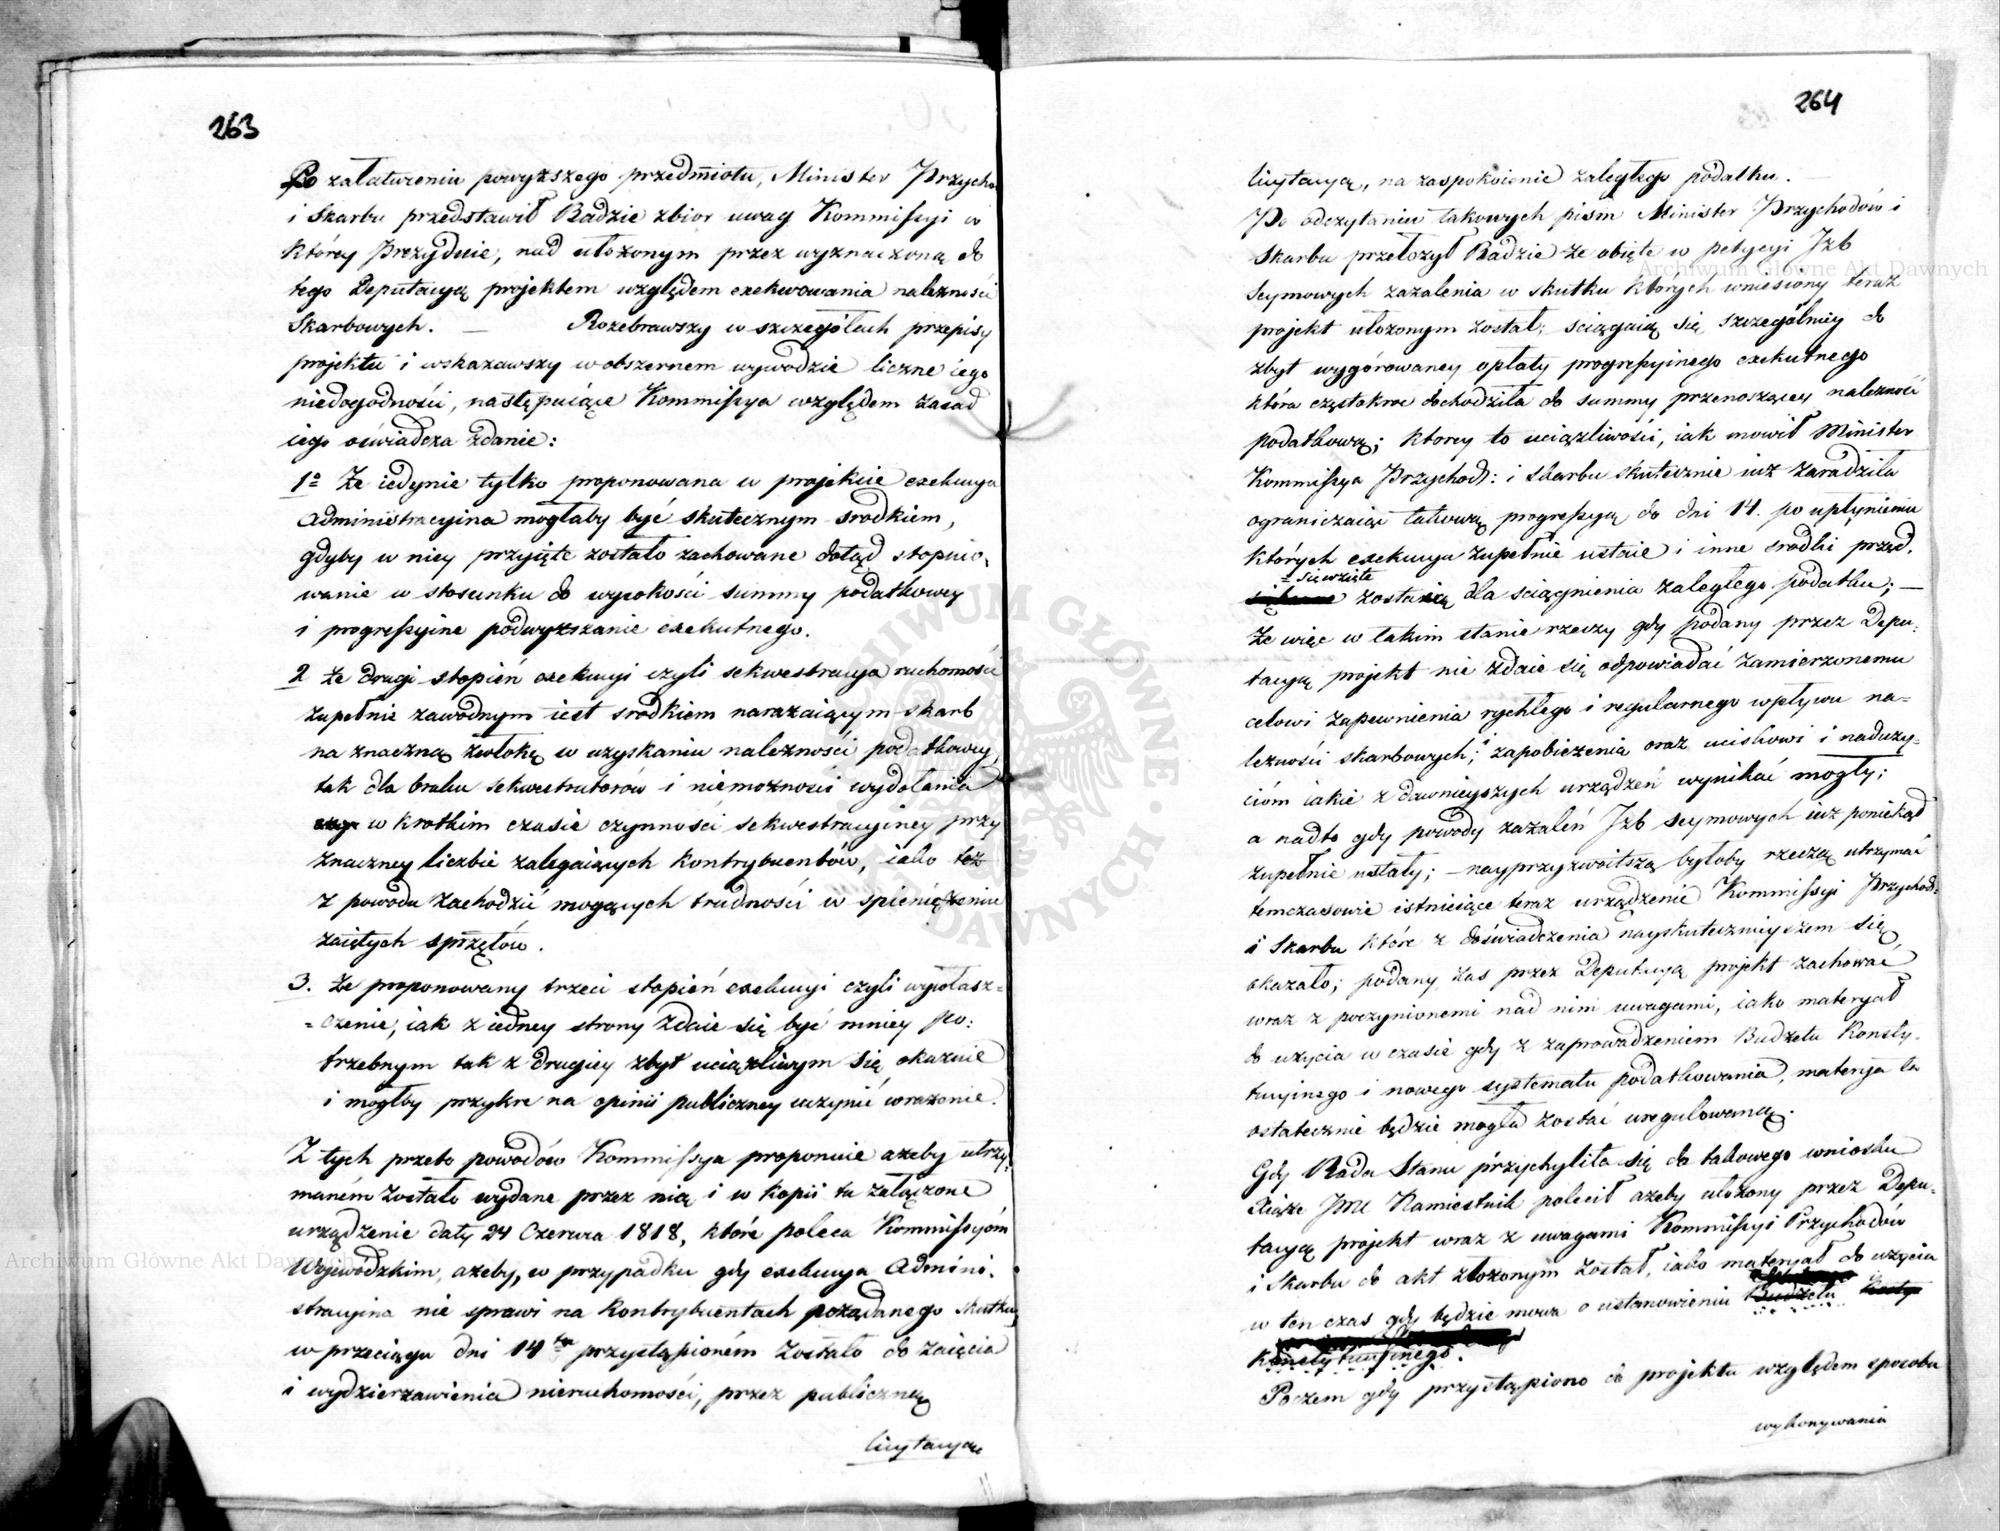 263
Po załatwieniu powyższego przedmiotu, Minister Przycho
i Skarbu przedstawił Radzie zbior uwag Kommissyi w
którey Prezyduie, nad ułożonym przez wyznaczoną do
tego Deputacyą projektem względem exekwowania należności
Skarbowych. — Rozebrawszy w szczegółach przepisy
projektu i wskazawszy w obszernem wywodzie liczne iego
niedogodności, następuiące Kommissya względem zasad
iego oświadcza zdanie:
1o Że iedynie tylko proponowana w projekcie exekucya
Administracyina mogłaby być skutecznym srodkiem,
gdyby w niey przyięte zostało zachowane dotąd stopnio,
wanie w stosunku do wysokości summy podatkowey
i progressyine podwyższanie exekutnego.
2 Że drugi stopień exekucyi czyli sekwestracya ruchomości
zupełnie zawodnym iest srodkiem narażaiącym skarb
na znaczną zwłokę w uzyskaniu należności podatkowey,
tak dla braku sekwestratorów i niemożności wydołania
w krotkim czasie czynności sekwestracyiney przy
znaczney liczbie zalegaiących kontrybuentów, iako też
z powodu zachodzić mogących trudności w spieniężeniu
zaiętych sprzętów.
3. Że proponowany trzeci stopień exekucyi czyli wywłasz=
=czenie, iak z iedney strony zdaie się być mniey po:
trzebnym tak z drugiey zbyt uciążliwym się okazuie
i mogłby przykre na opinii publiczney uczynić wrażenie.
Z tych przeto powodów Kommissya proponuie ażeby utrzy,
maném zostało wydane przez nią i w kopii tu załączone
urządzenie daty 24 Czerwca 1818, które poleca Kommissyóm
Wojewodzkim, ażeby, w przypadku gdy exekucya Admini.
stracyina nie sprawi na kontrybuentach pożądanego skutku,
w przeciągu dni 14tu przystąpioném zostało do zaięcia
i wydzierżawienia nieruchomości, przez publiczną
licytacyą
264
licytacyą, na zaspokoienie zaległego podatku. —
Po odczytaniu takowych pism Minister Przychodów i
Skarbu przełożył Radzie że obięte w petycyi Jzb
Seymowych zażalenia w skutku których wniesiony teraz
projekt ułożonym został, sciągaią się szczególniey do
zbyt wygórowaney opłaty progressyinego exekutnego
która częstokroc dochodziła do summy przenoszącey należność
podatkową; ktorey to uciążliwości, iak mowił Minister
Kommissya Przychod: i Skarbu skutecznie iuż zaradziła
ograniczaiąc takową progressyą do dni 14. po upłynieniu
których exekucya zupełnie ustaie i inne srodki przed.
=sięwzięte
zostaną dla sciągnienia zaległego podatku; —
że więc w takim stanie rzeczy gdy podany przez Depu:
tacyą projekt nie zdaie się odpowiadać zamierzonemu
celowi zapewnienia rychłego i regularnego wpływu na=
leżności skarbowych; i zapobieżenia oraz uciskowi i naduży=
cióm iakie z dawnieyszych urządzeń wynikać mogły;
a nadto gdy powody zażaleń Jzb seymowych iuż poniekąd
zupełnie ustały; — nayprzyzwoitszą byłoby rzeczą utrzymać
temczasowie istnieiące teraz urządzenie Kommissyi Przychod:
i Skarbu które z doświadczenia nayskutecznieyszem się
okazało; podany zas przez Deputacyą projekt zachować
wraz z poczynionemi nad nim uwagami, iako materyał
do użycia w czasie gdy z zaprowadzeniem Budżetu Konsty.
tucyinego i nowego systematu podatkowania, materya ta
ostatecznie będzie mogła zostać uregulowaną.
Gdy Rada Stanu przychyliła się do takowego wniosku
Xiąże JMC Namiestnik polecił ażeby ułożony przez Depu=
tacyą projekt wraz z uwagami Kommissyi Przychodów
i Skarbu do akt złożonym został, iako materyał do użycia
w ten czas gdy będzie mowa o ustanowieniu Budżetu
Konstytucyinego.
Poczem gdy przystąpiono do projektu względem sposobu
wykonywania
Archiwum Główne Akt Dawnych
Archiwum Główne Akt Dawnych
ARCHIWUM GŁÓWNE AKT DAWNYCH